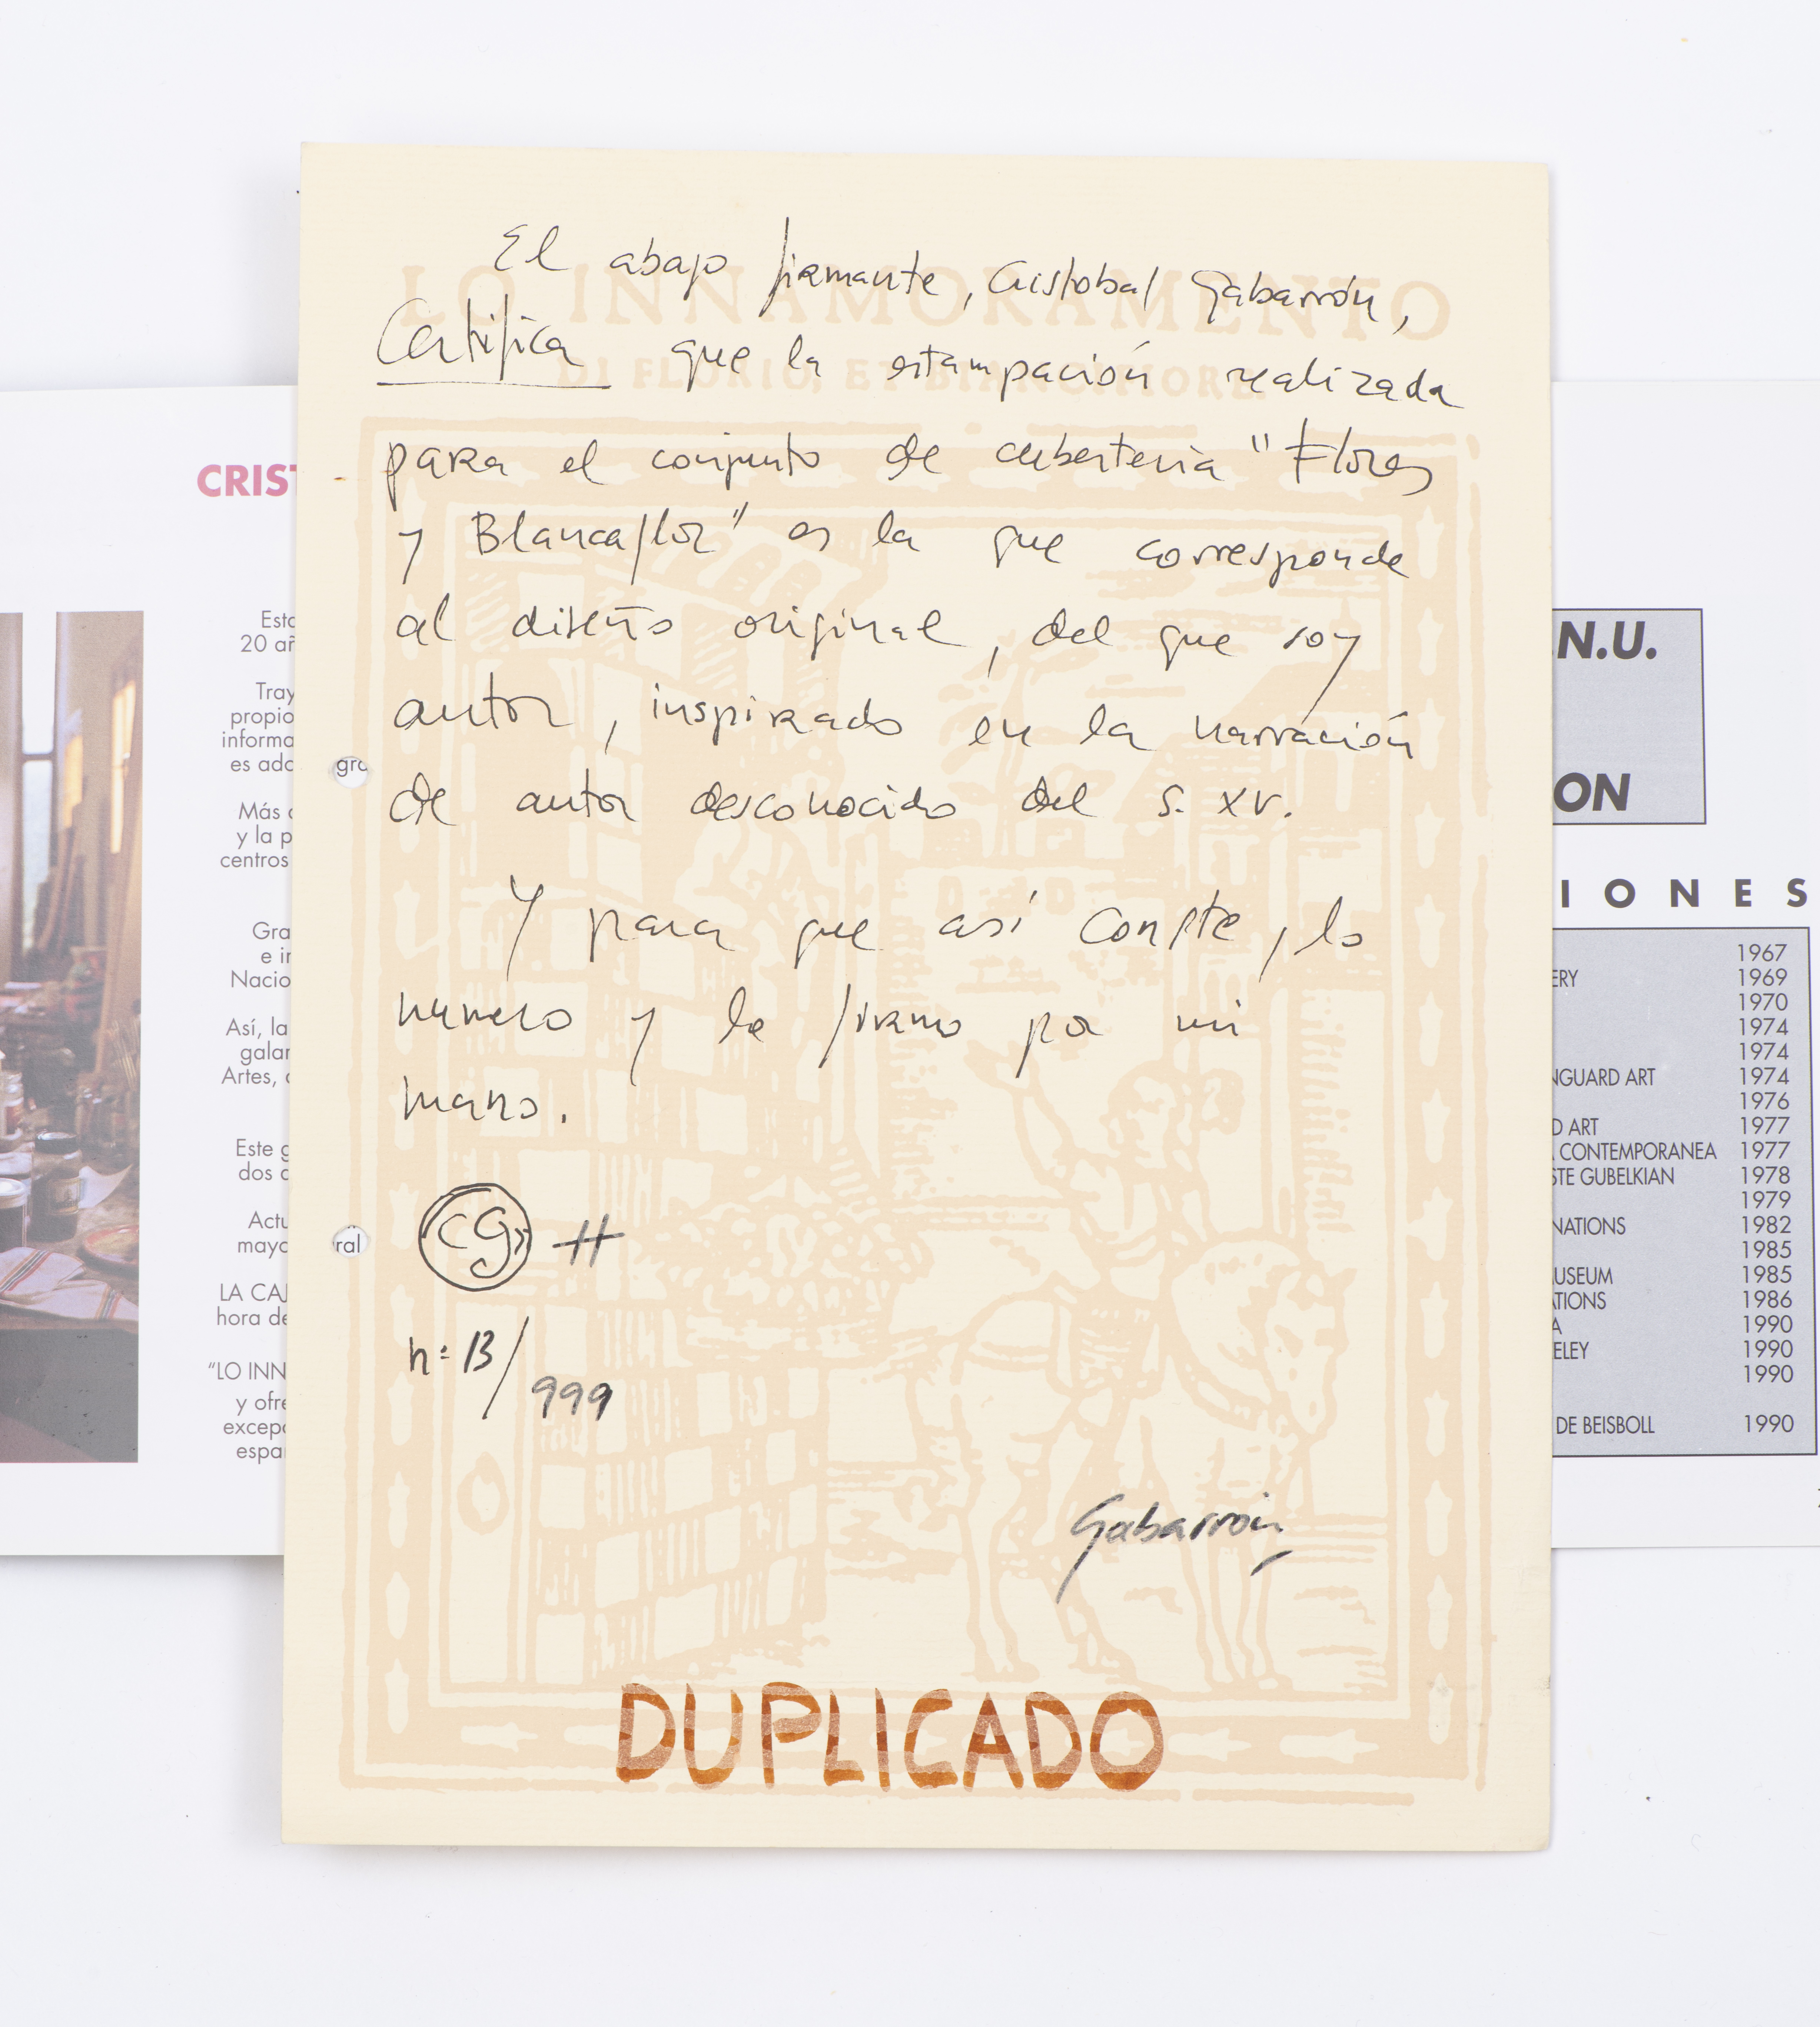 El abajo firmante, Cristobal Gabarrón,
Certifica que la estampación realizada
para el conjunto de cubertería "Flores
y Blancaflor" es la que corresponde
al diseño original, del que soy
autor, inspirado en la narración
de autor desconocido del s. XV.
Y para que así conste, lo
numero y lo firmo por mi
mano.
cg
nº 13/999
Gabarrón
DUPLICADO
LO INNAMORAMENTO
DI FLORIO, ET BIANCIFIORE
CRIST
Esta
20 añ
Tray
propio
informa
es ado
gra
Más
y la p
centros
Gra
e in
Nacio
Así, la
galar
Artes,
Este g
dos
Actu
mayo
ral
LA CAJ
hora de
"LO INN
y ofre
excep
espa
.N.U.
ON
IONES
1967
ERY 1969
1970
1974
1974
NGUARD ART 1974
1976
D ART 1977
CONTEMPORANEA 1977
STE GUBELKIAN 1978
1979
NATIONS 1982
1985
USEUM 1985
ATIONS 1986
A 1990
ELEY 1990
1990
DE BEISBOLL 1990